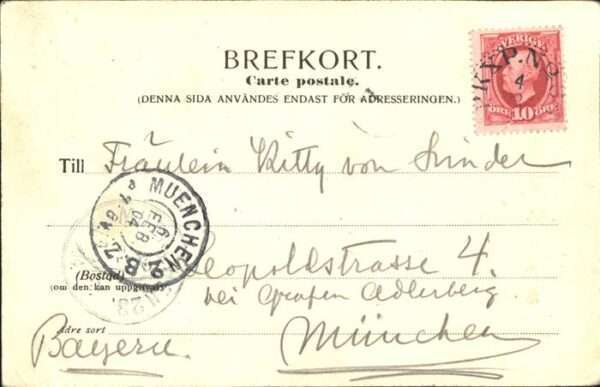 BREFKORT.
Carte postale.
(DENNA SIDA ANVÄNDES ENDAST FÖR ADRESSERINGEN.)
SVERIGE
PKXP. No
4
10
ÖRE ÖRE
Till Fräulein Kitty von
MUENCHEN 2 B.Z.
6
FEB
04
(Bostad) Leopoldstrasse 4.
(om den kan uppgifvas)
bei Grafen Adlerberg
Adressort
München
Bayern.